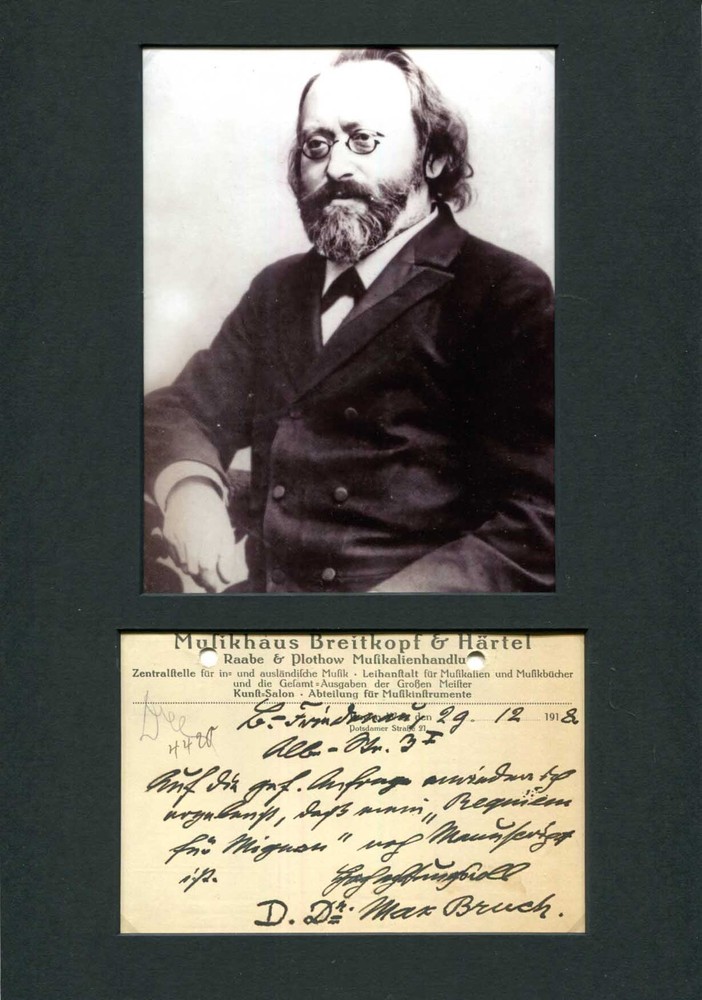 Musikhaus Breitkopf & Härtel
Raabe & Plothow Musikalienhandlu
Zentralstelle für in= und ausländische Musik · Leihanstalt für Musikalien und Musikbücher
und die Gesamt=Ausgaben der Großen Meister
Kunst=Salon · Abteilung für Musikinstrumente
B.-Friedenau, den 29. 12 1918
Potsdamer Straße 21
4420
Alb.-Str. 3
Auf die gef. Anfrage erwidere ich
ergebenst, daß mein „Requiem
für Mignon" noch Manuscript
ist. Hochachtungsvoll
D. Dr. Max Bruch.